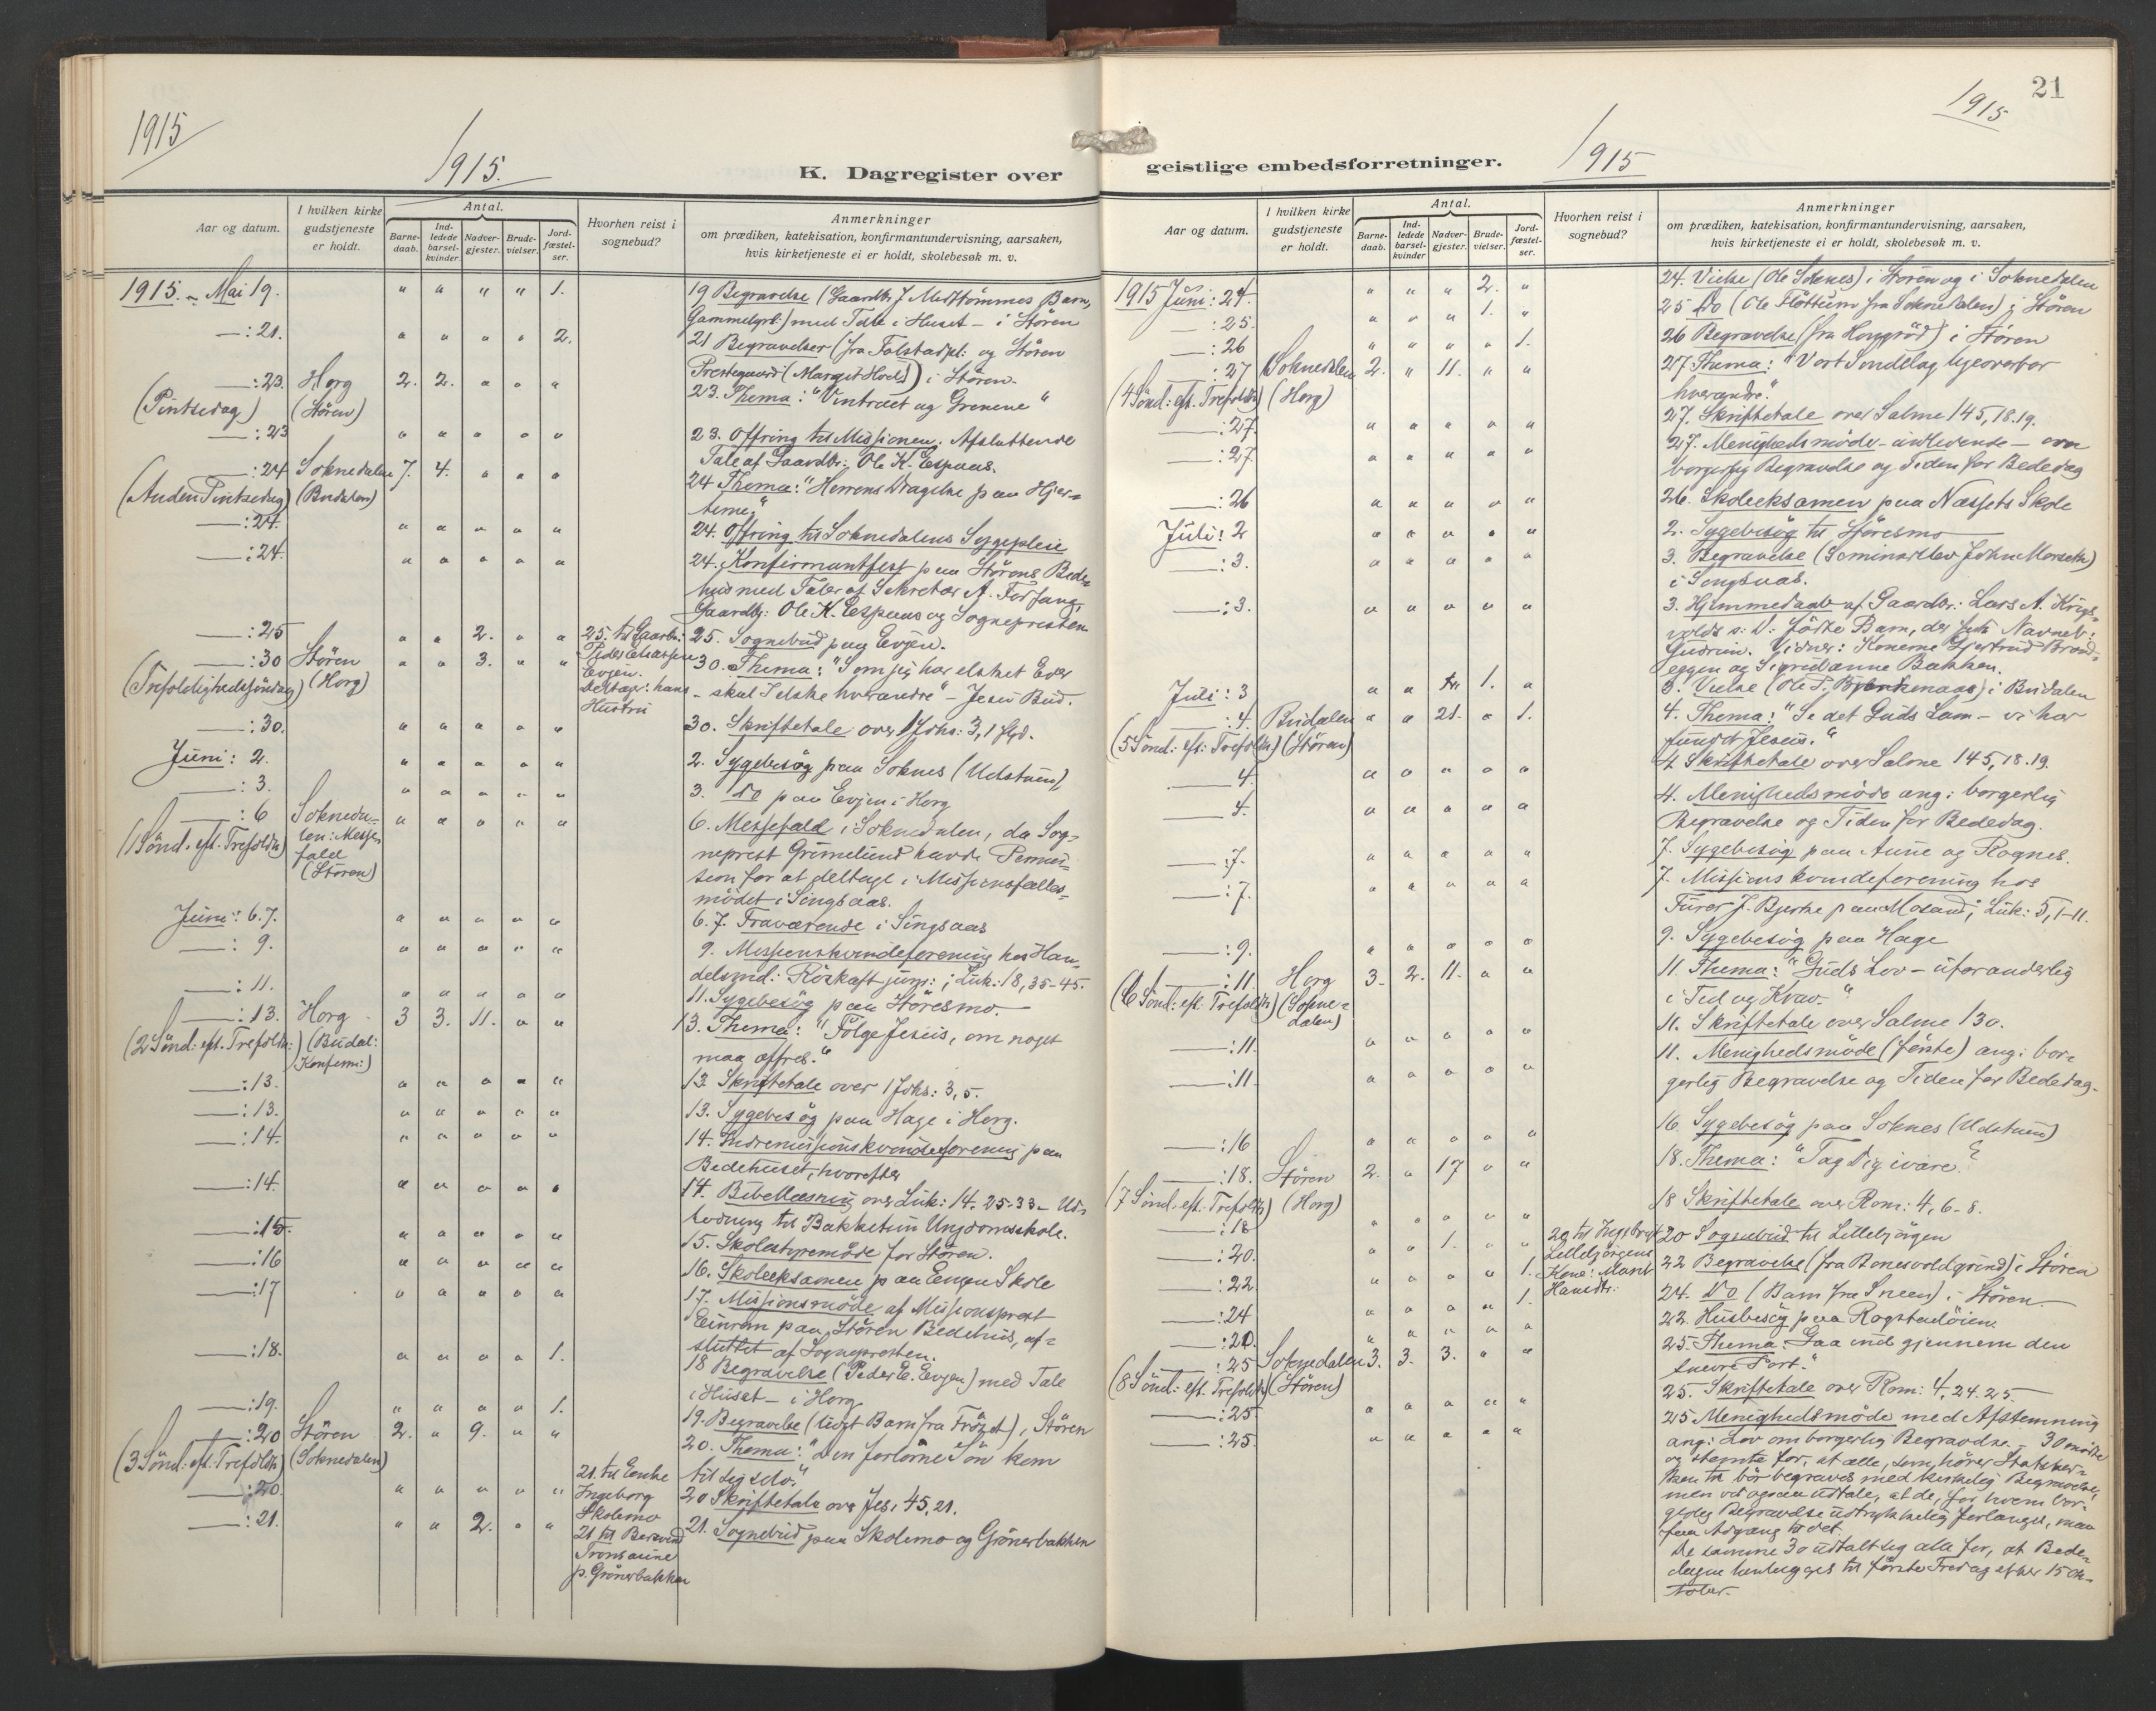 1915
1915.
K. Dagregister over
Aar og datum.
I hvilken kirke gudstjeneste er holdt.
Antal.
Barne-daab.
Ind-ledede barsel-kvinder.
Nadver-gjester.
Brude-vielser.
Jord-fæstel-ser.
Hvorhen reist i sognebud?
Anmerkninger
om prædiken, katekisation, konfirmantundervisning, aarsaken,
hvis kirketjeneste ei er holdt, skolebesøk m. v.
1915. - Mai 19. " " " " 1. 19 Begravelse (Gaardbr. J. Barn,
med Tale i Huset - i Støren
—:21. " " " " 2. 21 Begravelser (fra Folstadpl: og Støren
Prestegaard (Margit) i Støren.
—:23. Horg 2. 2. " " " 23. Thema: "Vintræet og Grenene"
(Pintsedag) (Støren)
—:23 " " " " " 23. Offring til Missionen. Afsluttende
Tale af Gaardbr: Ole K. Espaas.
—:24 Soknedalen 7. 4. " " " 24 Thema: "Herrens Dragelse paa Hjer-
terne."
(Anden Pintsedag) (Budalen)
—:24. " " " " " 24. Offring til Soknedalens Sygepleie
—:24. " " " " " 24. Konfirmantfest paa Størens Bede-
hus med Taler af Sekretær A. Forfang,
Gaardbr: Ole K. Espaas og Sognepresten
—:25 " " 2. " " 25. til Gaardbr: 25. Sognebud paa Evjen.
Peder
Evjen.
Deltager: hans
Hustru
—:30 Støren " " 3. " " 30. Thema: "Som jeg har elsket Eder
(Trefoldighedssøndag) (Horg) - skal I elske hverandre" - Jesu Bud.
—:30. " " " " " 30. Skriftetale over 1 Johs: 3, 1 flgd.
Juni: 2. " " " " " 2. Sygebesøg paa Soknes (Udstuen)
—:3. " " " " " 3. Do paa Evjen i Horg
—:6 Sokneda-
len: Messe-
fald
(Støren)
(1 Sønd. eft. Trefoldh) " " " " " 6. Messefald i Soknedalen, da Sog-
neprest Grimelund havde Permis-
sion for at deltage i Missionsfælles-
mødet i Singsaas.
Juni: 6.7. " " " " " 6. 7. Fraværende i Singsaas
—:9. " " " " " 9. Missionskvindeforening hos Han-
delsmd: Röskaft jun: ; Luk: 18, 35-45.
—:11. " " " " " 11. Sygebesøg paa Støresmo.
—:13. Horg 3 3. 11. " " 13. Thema: "Følge Jesus, om noget
maa offres."
(2 Sønd: eft. Trefoldh:) (Budal:
Konfirm:)
—:13. " " " " " 13. Skriftetale over 1 Johs: 3, 5.
—:13. " " " " " 13. Sygebesøg paa Hage i Horg.
—:14. " " " " " 14. Indremissionskvindeforening paa
Bedehuset, hvorefter
—:14. " " " " " 14. Bibellæsning over Luk: 14. 25-33 - Ud-
lodning til Bakketun Ungdomsskole.
—:15. " " " " " 15. Skolestyremøde for Støren.
—:16 " " " " " 16. Skoleeksamen paa Engen Skole
—:17 " " " " " 17. Missionsmøde af Missionsprest
Einrem paa Støren Bedehus, af-
sluttet af Sognepresten.
—:18. " " " " 1. 18 Begravelse (Peder E. Evjen) med Tale
i Huset - i Horg
—:19. " " " " 1. 19. Begravelse (udøpt Barn fra Frøset) i Støren
—:20 Støren 2. " 9. " " 20. Thema: "Den forlorne Søn kom
til sig selv."
(3 Sønd: eft. Trefoldh) (Soknedalen)
—:20. " " " " " 20 Skriftetale over Jes: 45, 21.
—:21. " " 2. " " 21. til Enke
Ingeborg
Skolemo
21 til Bersvend
Tronsaune
p. Grönerbakken
21. Sognebud paa Skolemo og Grönerbakken
21
1915
geistlige embedsforretninger.
1915
Aar og datum.
I hvilken kirke gudstjeneste er holdt.
Antal.
Barne-daab.
Ind-ledede barsel-kvinder
Nadver-gjester.
Brude-vielser.
Jord-fæstel-ser.
Hvorhen reist i sognebud?
Anmerkninger
om prædiken, katekisation, konfirmantundervisning, aarsaken,
hvis kirketjeneste ei er holdt, skolebesøk m. v.
1915 Juni: 24. " " " 2. " 24. Vielse (Ole Soknes) i Støren og i Soknedalen
—:25. " " " 1. " 25 Do (Ole Fløttum fra Soknedalen) i Støren
—:26 " " " " 1. 26 Begravelse (fra Horggröd) i Støren
—:27 Soknedalen 2. " 11. " " 27 Thema: "Vort Sindelag ligeoverfor
hverandre".
(4 Sønd: eft. Trefoldh) (Horg)
—:27. " " " " " 27. Skriftetale over Salme 145, 18. 19.
—:27. " " " " " 27. Menighedsmøde - indledende - om
borgerlig Begravelse og Tiden for Bededag
—:26 " " " " " 26. Skoleeksamen paa Næssets Skole
Juli: 2 " " " " " 2. Sygebesøg til Støresmo
—:3. " " " " " 3. Begravelse (Seminarelev John Morseth)
i Singsaas.
—:3. " " " " " 3. Hjemmedaab af Gaardbr: Lars A. Krigs-
volds Barn,
Gudrun. Fadder: Konerne Gjertrud Brand-
eggen og Sigridanne Bakken.
Juli: 3 " " 1. " 3. Vielse (Ole P. Bjerkenaas) i Budalen
—:4. Budalen " " 21. " 1. 4. Thema: "Se det Guds Lam - vi har
fundet Jesus."
(5 Sønd: eft: Trefoldh) (Støren)
—4. " " " " " 4 Skriftetale over Salme 145, 18. 19.
—4. " " " " " 4. Menighedsmøde ang: borgerlig
Begravelse og Tiden for Bededag.
—:7. " " " " " 7. Sygebesøg paa Aune og Rognes.
—:7. " " " " " 7. Missionskvindeforening hos
Furer J. Bjerke paa Mosand; Luk: 5, 1-11.
—:9. " " " " " 9. Sygebesøg paa Hage
—:11. Horg 3. 2. 11. " " 11. Thema: "Guds Lov - uforanderlig
i Tid og Krav."
(6 Sønd: eft. Trefoldh) (Sokne-
dalen)
—:11. " " " " " 11. Skriftetale over Salme 130.
—:11. " " " " " 11. Menighedsmøde (første) ang: bor-
gerlig Begravelse og Tiden for Bededag.
—:16 " " " " " 16. Sygebesøg paa Soknes (Udstuen)
—:18. Støren 2. " 17 " " 18. Thema: "Tag Dig ivare."
(7 Sønd. eft. Trefoldh) (Horg)
—:18 " " " " " 18 Skriftetale over Rom: 4, 6-8.
—:20. " " 1. " " 20 til Ingebrigt
Lillebjørgens
Kone: Marit
Hansdtr.
20 Sognebud til Lillebjørgen
—:22 " " " " 1. 22 Begravelse (fra Bonesvoldgrind) i Støren
—:24 " " " " 1. 24. Do (Barn fra Sneen) i Støren
—:20. " " " " " 22. Husbesøg paa Rogstadöien.
—:25 Soknedalen 3. 3. 3. " " 25. Thema: Gaa ind gjennem den
snevre Port."
(8 Sønd: eft. Trefoldh) (Støren)
—:25. " " " " " 25. Skriftetale over Rom: 4, 24. 25
—:25. " " " " " 25 Menighedsmøde med Afstemning
ang: Lov om borgerlig Begravelse. - 30 mødte
og stemte for, at alle, som hører Statskir-
ken til bør begraves med kirkelig Begravelse,
men vil ogsaa udtale, at de, for hvem bor-
gerlig Begravelse udtrykkelig forlanges, maa
faa Adgang til det.
De samme 30 udtalt sig alle for, at Bede-
dagen henlægges til første Fredag efter 15 Ok-
tober.